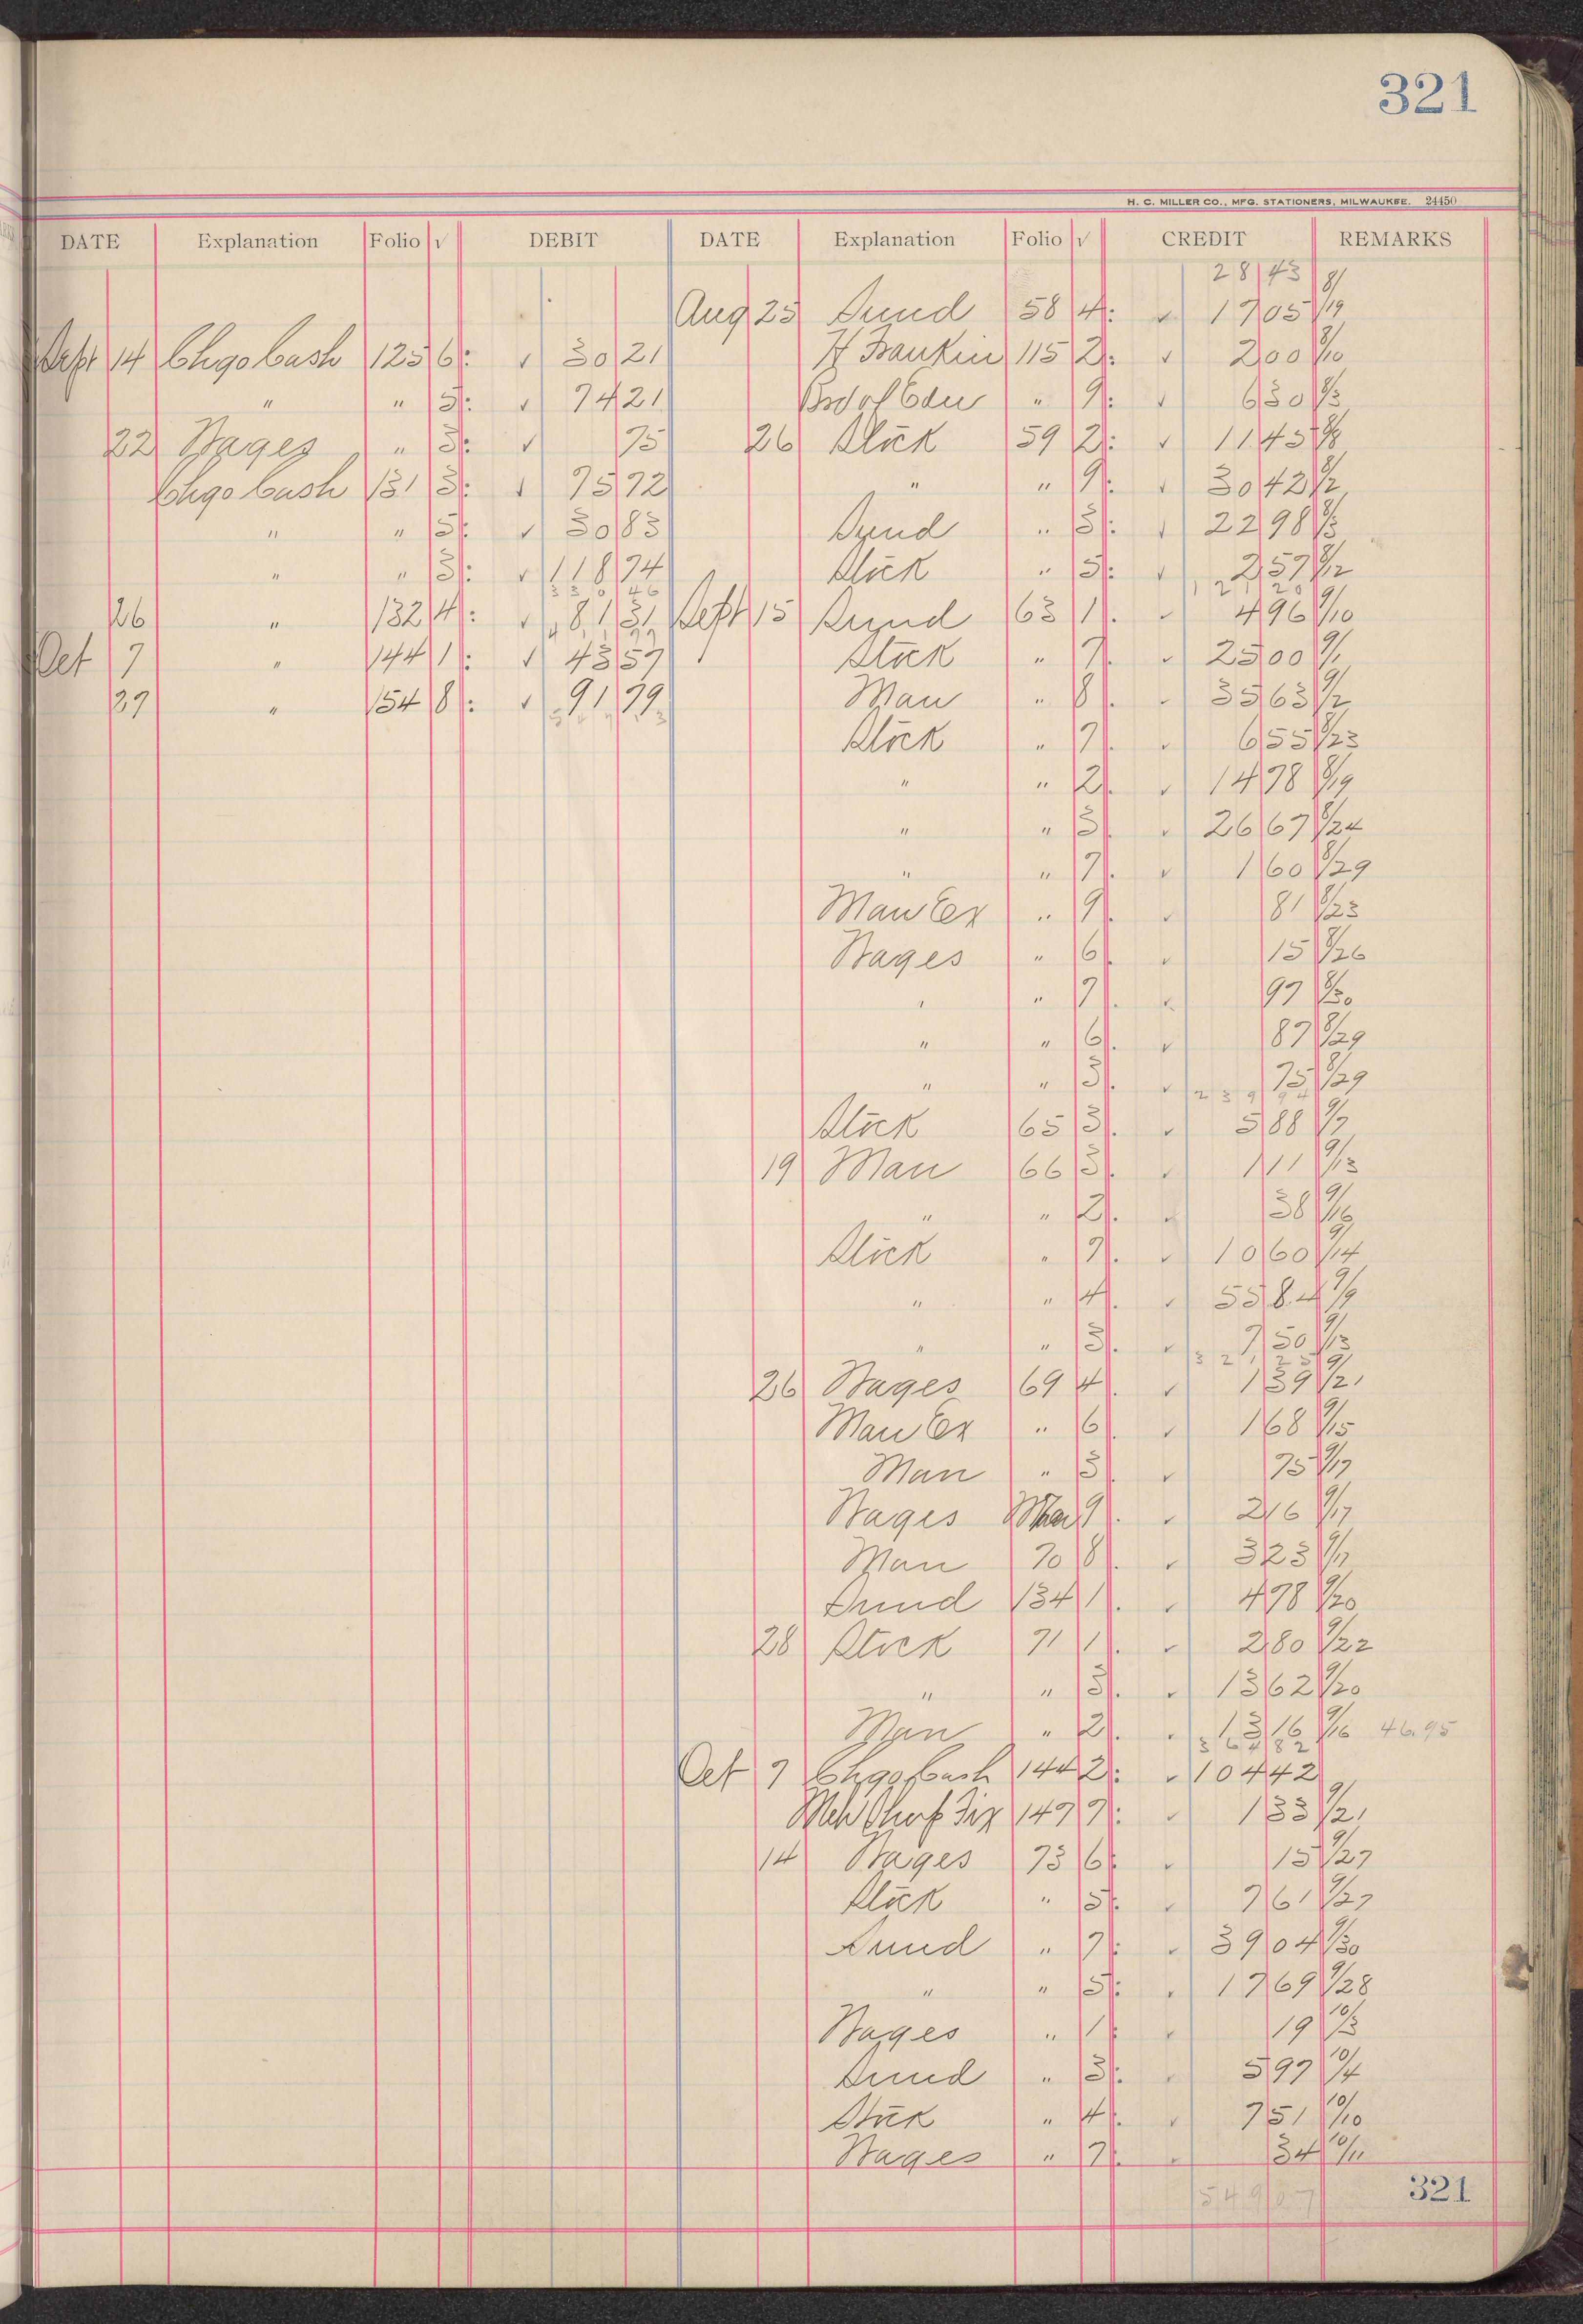 321
H. C. MILLER CO., MFG. STATIONERS, MILWAUKEE. 24450
DATE Explanation Folio √ DEBIT DATE Explanation Folio √ CREDIT REMARKS
28 43
Aug 25 Sund 58 4 : ✓ 17 05 8/19
Sept 14 Chgo Cash 125 6 : ✓ 30 21 H Frankin 115 2 : ✓ 2 00 8/10
" " 5 : ✓ 74 21 Bd of Edu " 9 : ✓ 6 30 8/3
22 Wages " 3 : ✓ 75 26 Stock 59 2 : ✓ 11 45 8/8
Chgo Cash 131 3 : ✓ 75 72 " " 9 : ✓ 30 42 8/2
" " 5 : ✓ 30 83 Sund " 3 : ✓ 22 98 8/3
" " 3 : ✓ 118 74 Stock " 5 : ✓ 2 57 8/12
26 " 132 4 : ✓ 81 31 Sept 15 Sund 63 1 . ✓ 4 96 9/10
Oct 7 " 144 1 : ✓ 43 57 Stock " 7 . ✓ 25 00 9/1
27 " 154 8 : ✓ 91 79 Man " 8 . ✓ 35 63 9/2
Stock " 7 . ✓ 6 55 8/23
" " 2 . ✓ 14 78 8/19
" " 3 . ✓ 26 67 8/24
" " 7 . ✓ 1 60 8/29
Man Ex " 9 . ✓ 81 8/23
Wages " 6 . ✓ 15 8/26
" " 7 . ✓ 97 8/30
" " 6 . ✓ 87 8/29
" " 3 . ✓ 75 8/29
2 3 9 9 4
Stock 65 3 . ✓ 5 88 9/7
19 Man 66 3 . ✓ 1 11 9/13
" " 2 . ✓ 38 9/16
Stock " 7 . ✓ 10 60 9/14
" " 4 . ✓ 55 84 9/9
" " 3 . ✓ 7 50 9/13
3 2 1 2 5
26 Wages 69 4 . ✓ 1 39 9/21
Man Ex " 6 . ✓ 1 68 9/15
Man " 3 . ✓ 75 9/17
Wages 9 . ✓ 2 16 9/17
Man 70 8 . ✓ 3 23 9/17
Sund 134 1 . ✓ 4 78 9/20
28 Stock 71 1 . ✓ 2 80 9/22
" " 3 . ✓ 13 62 9/20
Man " 2 . ✓ 13 16 9/16 46.95
3 6 4 8 2
Oct 7 Chgo Cash 144 2 : ✓ 104 42
147 7 : ✓ 1 33 9/21
14 Wages 73 6 : ✓ 15 9/27
Stock " 5 : ✓ 7 61 9/27
Sund " 7 : ✓ 39 04 9/30
" " 5 : ✓ 17 69 9/28
Wages " 1 : ✓ 19 10/3
Sund " 3 : ✓ 5 97 10/4
Stock " 4 : ✓ 7 51 10/10
Wages " 7 : ✓ 34 10/11
549 07
321